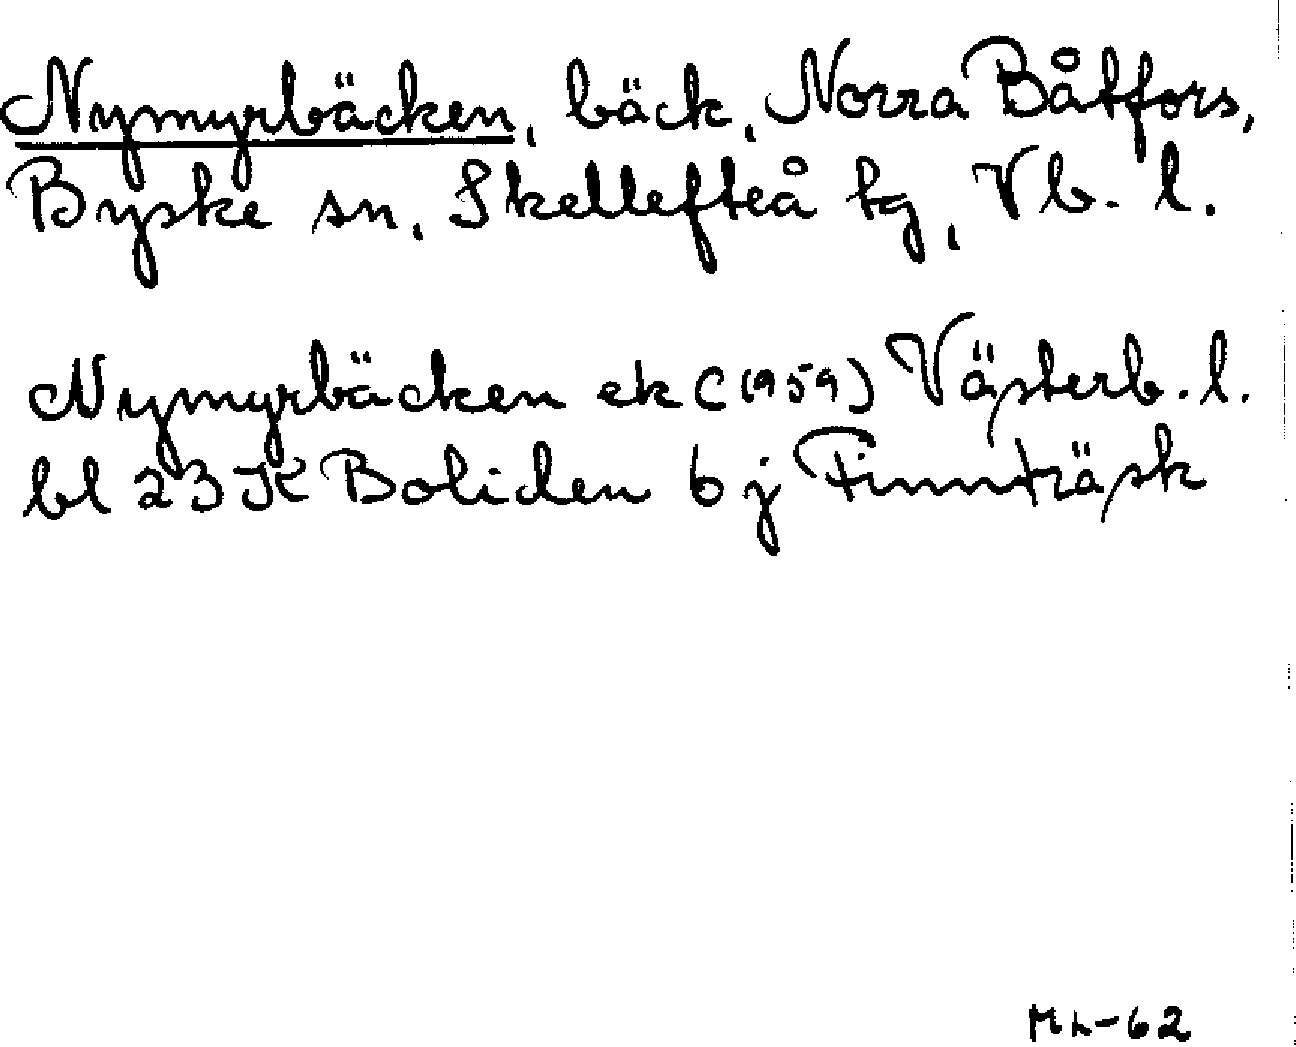 Nymyrbäcken, bäck, Norra Båtfors,
Byske sn, Skellefteå tg, Vb. l.
Nymyrbäcken ek (1959) Västerb. l.
bl 23 K Boliden 6 j Finnträsk